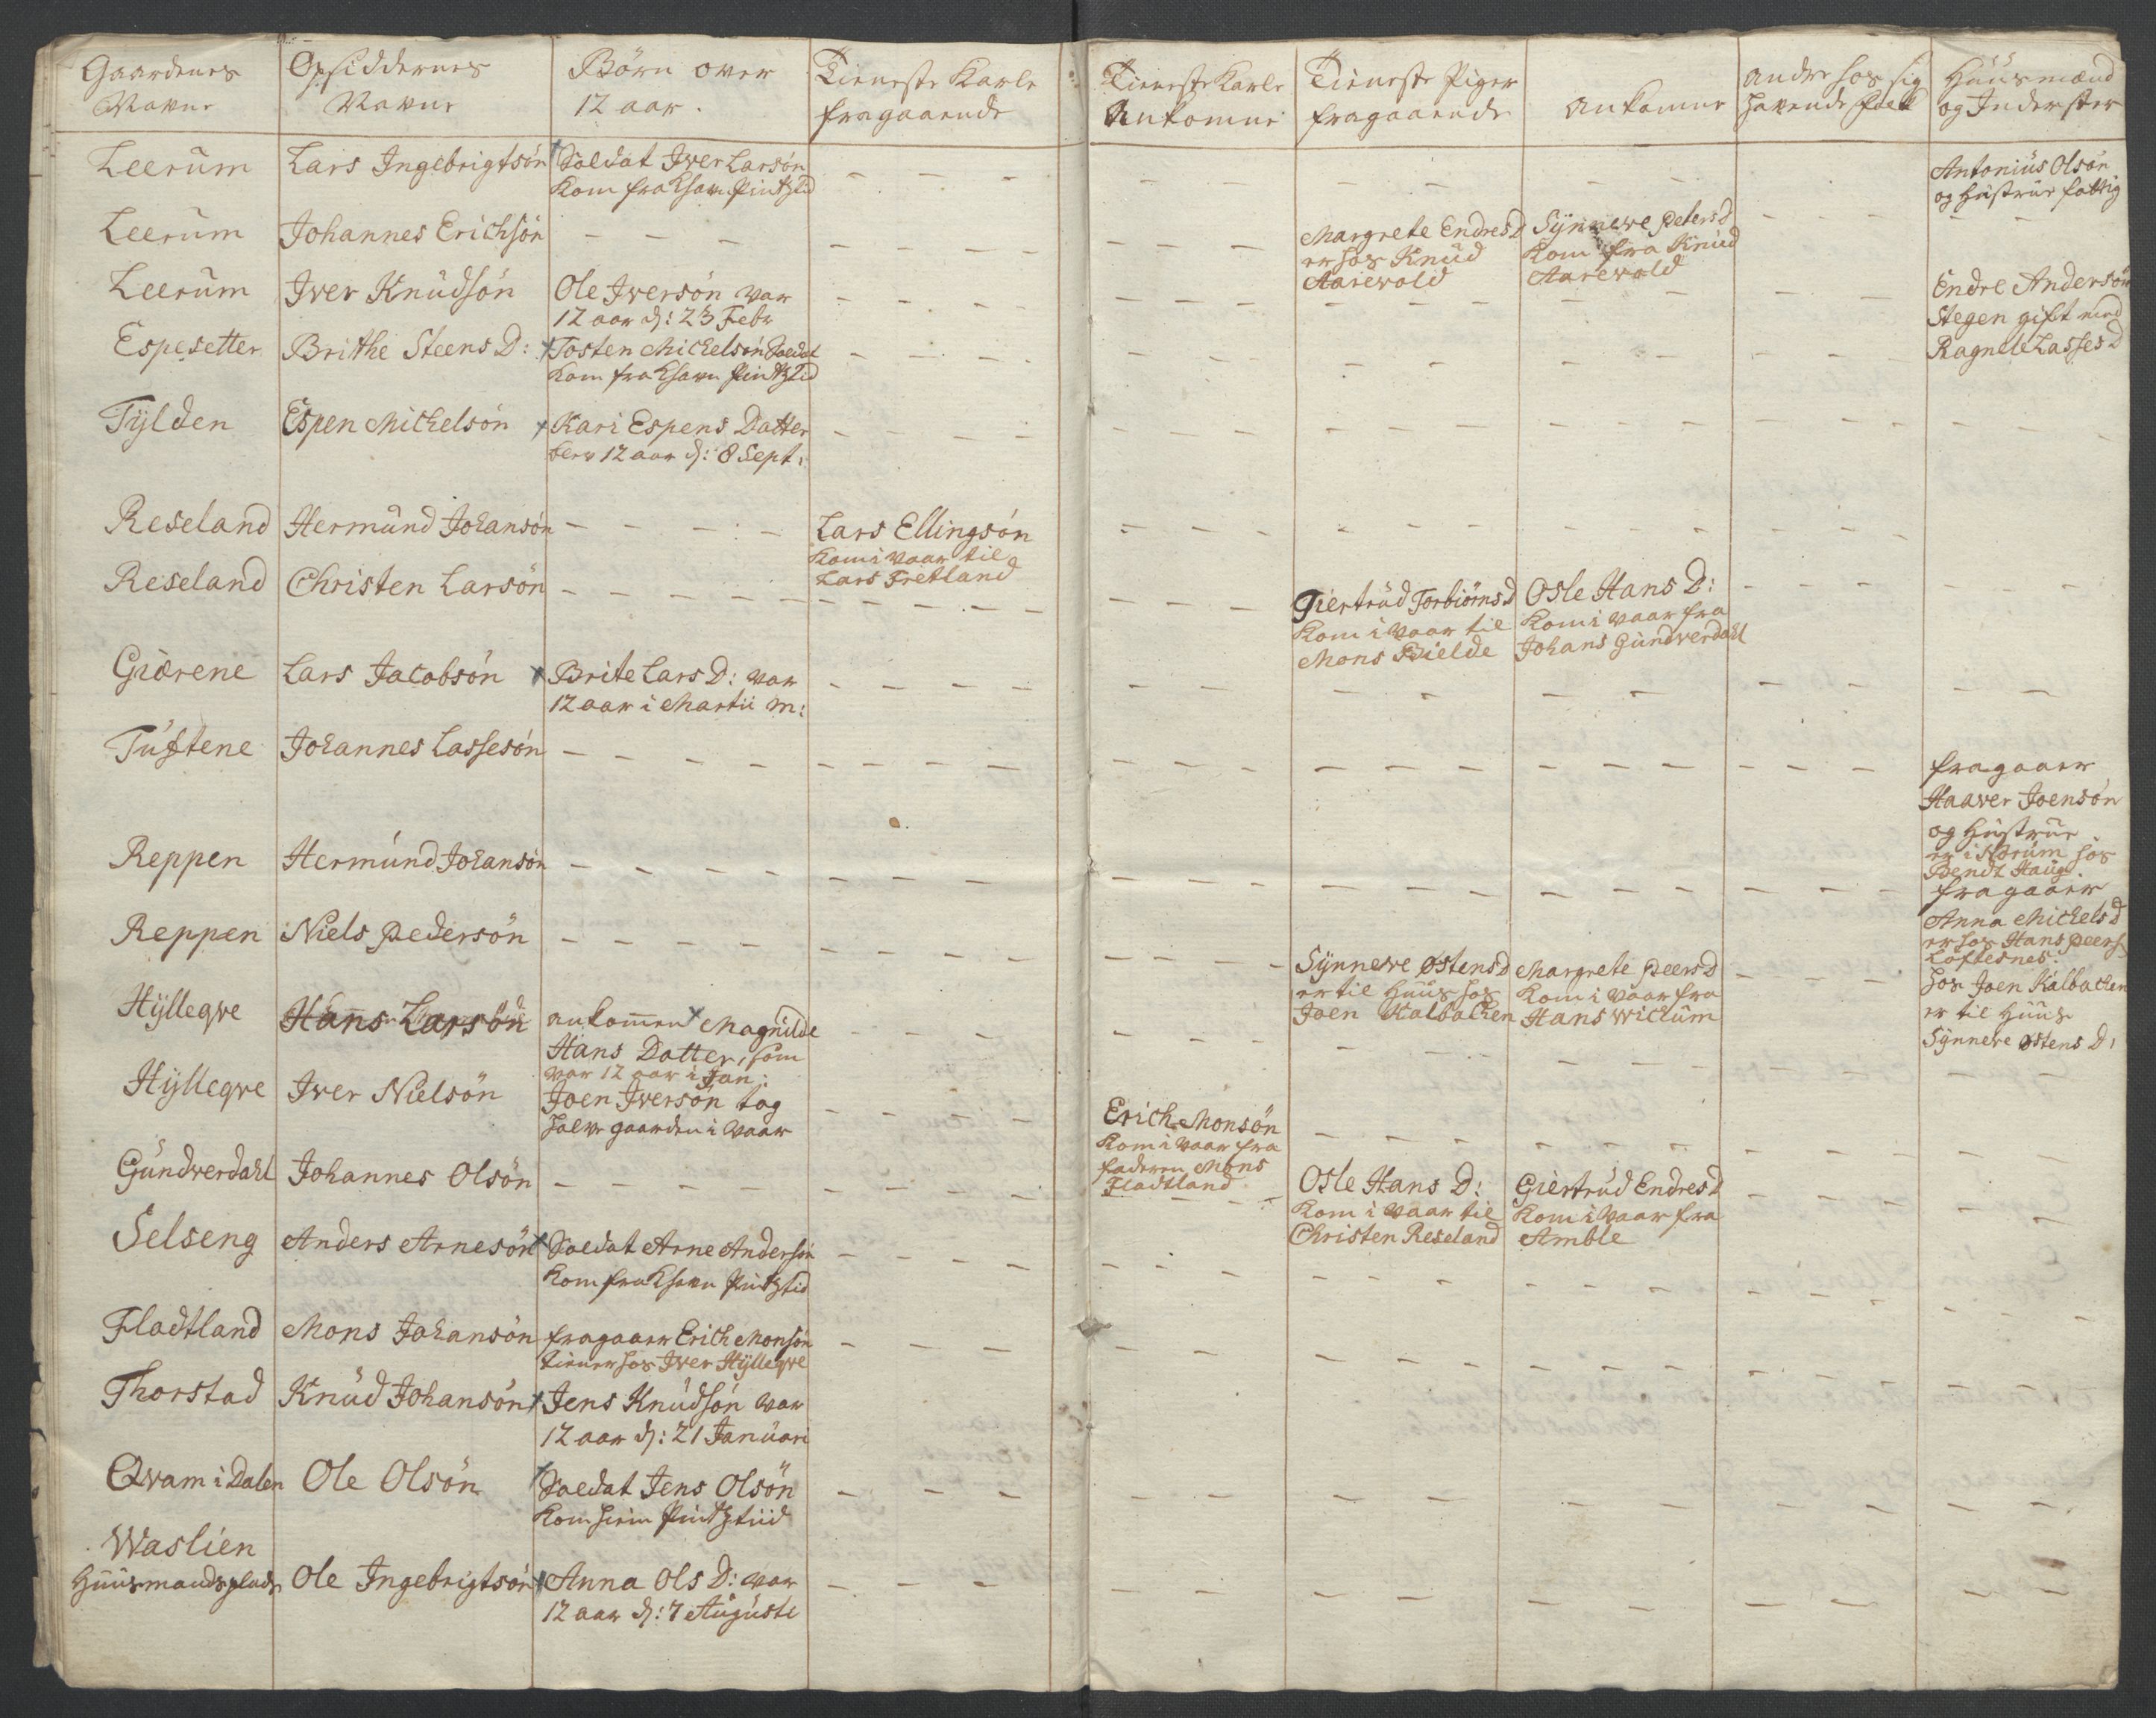 Gaardenes Navne
Opsiddernes Navne
Börn over 12 aar.
Tieneste Karle fragaaende
Tieneste Karle Ankomne
Tieneste Piger fragaaende
ankomne
andre hos sig havende folk
Huusmænd og Inderster
Leerum
Lars Ingebrigtsön
Soldat Iver Larsön
kom fra Khavn Pintztid
Antonius Olsön
og Hustrue fattig
Leerum
Johannes Erichsön
Margrete Endresd
er hos Knud
Aarevold
Synneve Petersd
kom fra Knud
Aarevold
Leerum
Iver Knudsön
Ole Iversön var
12 aar d: 23 Febr
Endre Andersön
Stegen gift med
Ragnele Lasses D
Espesetter
Brithe Steens D:
Tosten Michelsön Soldat
kom fra Khavn Pintztid
Tylden
Espen Michelsön
Kari Espens Datter
blev 12 aar d: 8 Sept:
Reseland
Hermund Johansön
Lars Ellingsön
kom i vaar til
Lars Fretland
Reseland
Christen Larsön
Giertrud Torbiörnsd
kom i vaar til
Mons Bielde
Osle Hans D:
kom i vaar fra
Johans Gundverdahl
Giærene
Lars Jacobsön
Brite Lars D: var
12 aar i Martii M:
Tuftene
Johannes Lassesön
fragaaer
Haaver Joensön
og Hustrue
er i Norum hos
Bendt Haug.
Reppen
Hermund Johansön
fragaaer
Anna Michels D
er hos Hans Peers
Loftesnes.
Reppen
Niels Pedersön
Synneve Østensd
er til Huus hos
Joen Kalbachen
Margrete Peersd
kom i vaar fra
Hans Wichum
hos Joen Kalbachen
er til Huus
Synneve Østens D:
Hyllegve
Hans Larsön
ankommen Magnilde
Hans Datter, som
var 12 aar i Jan:
Hyllegve
Iver Nielsön
Joen Iversön tog
halve gaarden i vaar
Erich Monsön
kom i vaar fra
faderen Mons
Fladtland
Gundverdahl
Johannes Olsön
Osle Hans D:
kom i vaar til
Christen Reseland
Giertrud Endresd
kom i vaar fra
Amble
Selseng
Anders Arnesön
Soldat Arne Andersön
kom fra Khavn Pintztid
Fladtland
Mons Johansön
fragaaer Erich Monsön
tiener hos Iver Hyllegve
Thorstad
Knud Johansön
Jens Knudsön var
12 aar d: 21 Januari
Qvam i Dalen
Ole Olsön
Soldat Jens Olsön
kom hiem Pintztiid
Waslien
Huusmandsplads
Ole Ingebrigtsön
Anna Ols D: var
12 aar d: 7 Auguste